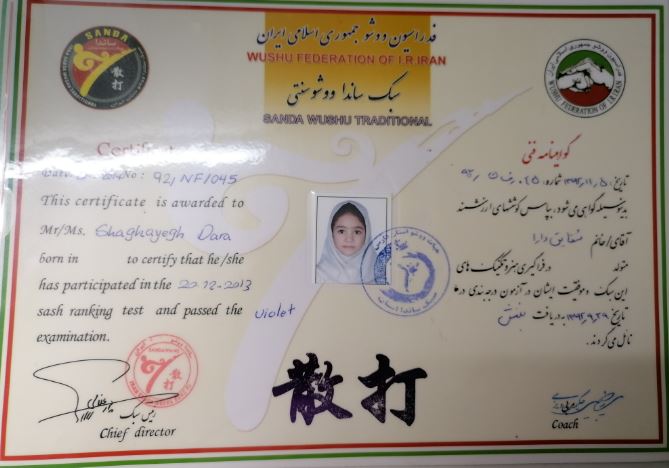 SANBA
ساندا
散打
فدراسیون ووشو جمهوری اسلامی ایران
WUSHU FEDERATION OF I.R.IRAN
سبک ساندا ووشو سنتی
SANDA WUSHU TRADITIONAL
فدراسیون ووشو جمهوری اسلامی ایران
WUSHU FEDERATION OF I.R.IRAN
No: 92/NF/045
This certificate is awarded to
Mr/Ms. Shaghayegh Dara
born in to certify that he/she
has participated in the 20-12-2013
sash ranking test and passed the violet
examination.
گواهینامه فنی
تاریخ: ۱۳۹۲,۱۱,۵ شماره: ۰۴۵
بدینوسیله گواهی می‌شود، بپاس کوششهای ارزشمند
آقای/خانم شقایق دارا
متولد در فراگیری هنر و تکنیک های
این سبک و موفقیت ایشان در آزمون درجه بندی در
تاریخ ۱۳۹۲,۹,۲۹ به دریافت بنفش
نائل می‌گردند.
散打
散打
رئیس سبک
Chief director
Coach